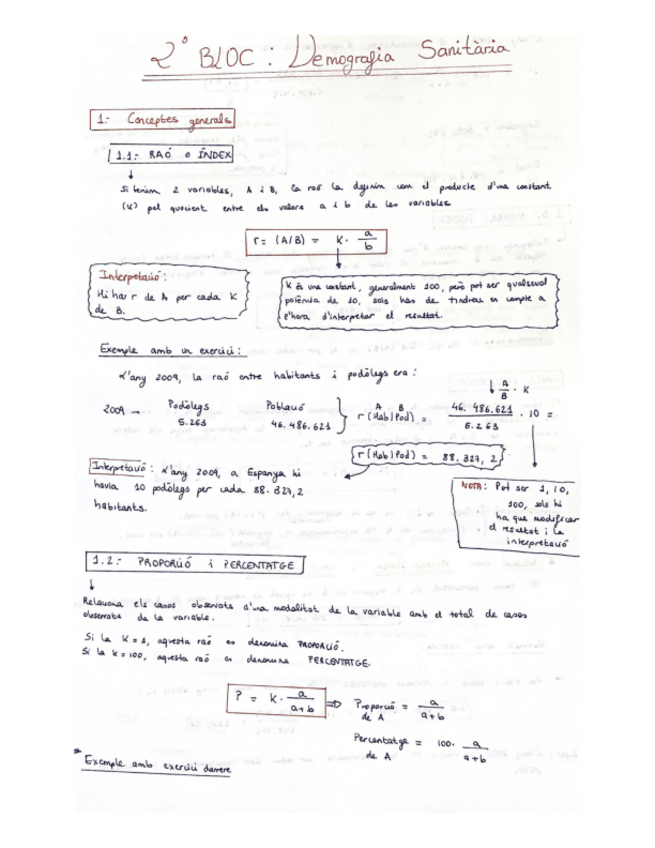 2º BLOC : Demografia Sanitària
1.- Conceptes generals
1.1.- RAÓ o ÍNDEX
Si tenim 2 variables, A i B, la raó la definim com el producte d'una constant
(K) pel quocient entre els valors a i b de les variables
r = (A/B) = K · a/b
Interpretació :
Hi ha r de A per cada K
de B.
K és una constant, generalment 100, però pot ser qualsevol
potència de 10, sols has de tindreu en compte a
l'hora d'interpretar el resultat.
Exemple amb un exercici :
L'any 2009, la raó entre habitants i podòlegs era :
A/B · K
Podòlegs Població
2009 → 5.263 46.486.621
A B
r (Hab|Pod) = 46.486.621 / 5.263 · 10 =
r (Hab|Pod) = 88.327,2
Interpretació : L'any 2009, a Espanya hi
havia 10 podòlegs per cada 88.327,2
habitants.
NOTA : Pot ser 1, 10,
100, sols hi
ha que modificar
el resultat i la
interpretació
1.2.- PROPORCIÓ i PERCENTATGE
Relaciona els casos observats d'una modalitat de la variable amb el total de casos
observats de la variable.
Si la K = 1, aquesta raó es denomina PROPORCIÓ.
Si la K = 100, aquesta raó es denomina PERCENTATGE.
P = K · a/a+b ⇒ Proporció de A = a/a+b
Percentatge de A = 100 · a/a+b
* Exemple amb exercici darrere